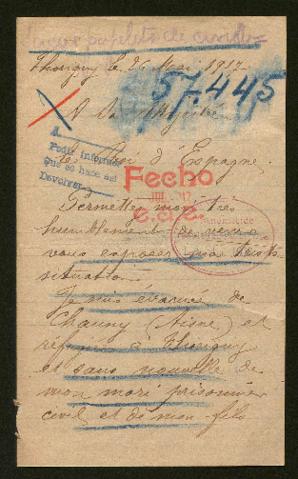 Thorigny le 26 Mai 1917
57.445
A Sa Majesté
Le Roi d'Espagne
A
Pedir informes
que se hace así
Devolver
Fecho
1917
Permettez moi très
humblement de venir
vous exposer ma triste
situation.
Je suis évacuée de
Chauny (Aisne) et
réfugiée à Thorigny
et sans nouvelle de
mon mari prisonnier
civil et de mon fils